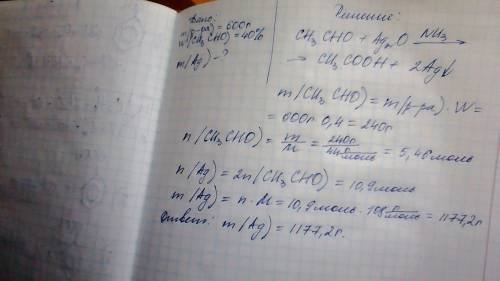 Дано:
m(р-ра) = 600г
W(CH₃CHO) = 40%
m(Ag) - ?
Решение:
CH₃CHO + Ag₂O NH₃→
→ CH₃COOH + 2Ag↓
m(CH₃CHO) = m(р-ра) · W =
= 600г 0,4 = 240г
n(CH₃CHO) = m/M = 240г/44г/моль = 5,45моль
n(Ag) = 2n(CH₃CHO) = 10,9моль
m(Ag) = n · M = 10,9моль · 108г/моль = 1177,2г
Ответ: m(Ag) = 1177,2г.